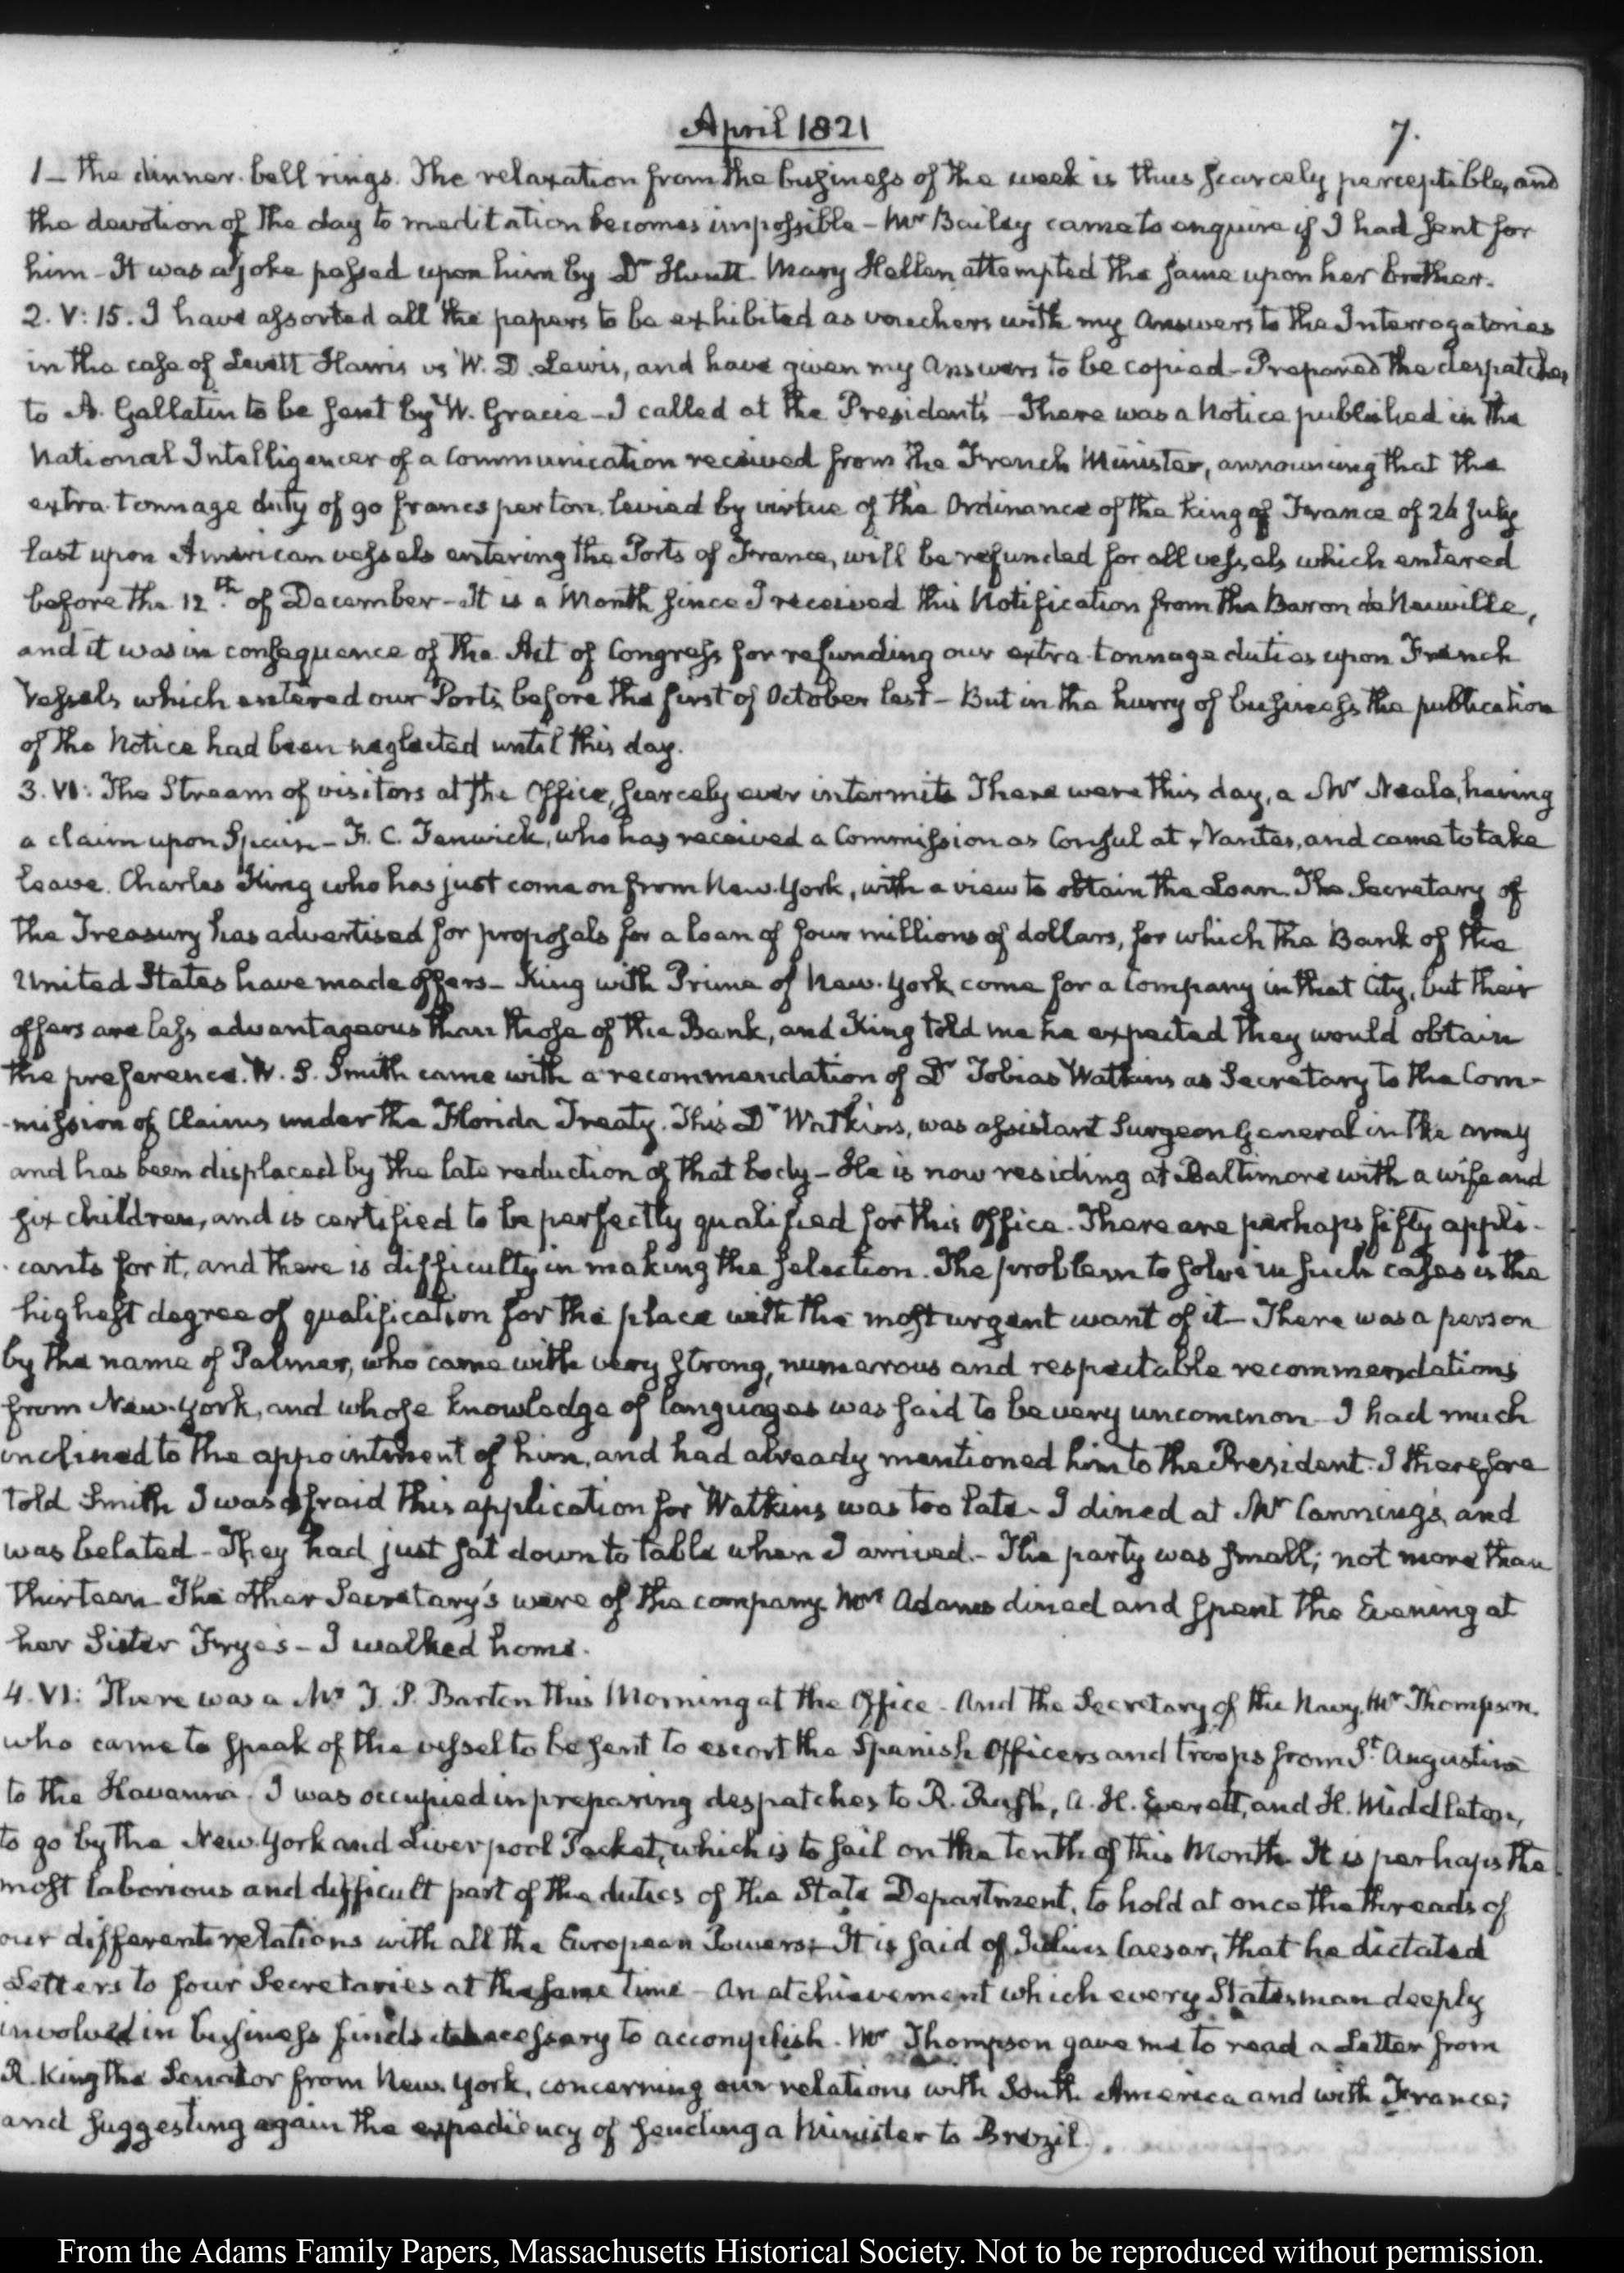 April 1821
7.
1 – the dinner-bell rings. The relaxation from the business of the week is thus scarcely perceptible, and
the devotion of the day to meditation becomes impossible – Mr Bailey came to enquire if I had sent for
him – It was a joke passed upon him by Dr Huntt. Mary Hellen attempted the same upon her brother.
2. V: 15. I have assorted all the papers to be exhibited as vouchers with my Answers to the Interrogatories
in the case of Levett Harris vs W. D. Lewis, and have given my Answers to be copied – Prepared the despatches
to A. Gallatin to be sent by W. Gracie – I called at the President's – There was a Notice published in the
National Intelligencer of a Communication received from the French Minister, announcing that the
extra tonnage duty of 90 francs per ton, levied by virtue of the Ordinance of the King of France of 26 July
last upon American vessels entering the Ports of France, will be refunded for all vessels which entered
before the 12th. of December – It is a Month since I received this Notification from the Baron de Neuville,
and it was in consequence of the Act of Congress for refunding our extra tonnage duties upon French
Vessels which entered our Ports before the first of October last – But in the hurry of business the publication
of the Notice had been neglected until this day.
3. VI: The Stream of visitors at the Office, scarcely ever intermits There were this day, a Mr Neale, having
a claim upon Spain – F. C. Fenwick, who has received a Commission as Consul at Nantes, and came to take
leave. Charles King who has just come on from New-York, with a view to obtain the Loan. The Secretary of
the Treasury has advertised for proposals for a loan of four millions of dollars, for which the Bank of the
United States have made offers – King with Prime of New-York come for a Company in that City, but their
offers are less advantageous than those of the Bank, and King told me he expected they would obtain
the preference. W. S. Smith came with a recommendation of Dr Tobias Watkins as Secretary to the Com-
-mission of Claims under the Florida Treaty. This Dr Watkins, was assistant Surgeon General in the army
and has been displaced by the late reduction of that body – He is now residing at Baltimore with a wife and
six children, and is certified to be perfectly qualified for this Office. There are perhaps fifty appli-
-cants for it, and there is difficulty in making the selection. The problem to solve in such cases is the
highest degree of qualification for the place with the most urgent want of it – There was a person
by the name of Palmer, who came with very strong, numerous and respectable recommendations
from New-York, and whose knowledge of languages was said to be very uncommon – I had much
inclined to the appointment of him, and had already mentioned him to the President. I therefore
told Smith I was afraid this application for Watkins was too late – I dined at Mr Canning's, and
was belated – They had just sat down to table when I arrived. – The party was small; not more than
thirteen – The other Secretary's were of the company. Mrs Adams dined and spent the Evening at
her Sister Frye's – I walked home.
4. VI: There was a Mr T. P. Barton this Morning at the Office – And the Secretary of the Navy, Mr Thompson.
who came to speak of the vessel to be sent to escort the Spanish Officers and troops from St. Augustine
to the Havanna. I was occupied in preparing despatches to R. Rush, A. H. Everett, and H. Middleton,
to go by the New-York and Liverpool Packet, which is to sail on the tenth of this Month. It is perhaps the
most laborious and difficult part of the duties of the State Department, to hold at once the threads of
our different relations with all the European Powers – It is said of Julius Caesar, that he dictated
Letters to four Secretaries at the same time – An atchievement which every Statesman deeply
involved in business finds it necessary to accomplish. Mr Thompson gave me to read a Letter from
R. King the Senator from New-York, concerning our relations with South America and with France;
and suggesting again the expediency of sending a Minister to Brazil.
From the Adams Family Papers, Massachusetts Historical Society. Not to be reproduced without permission.